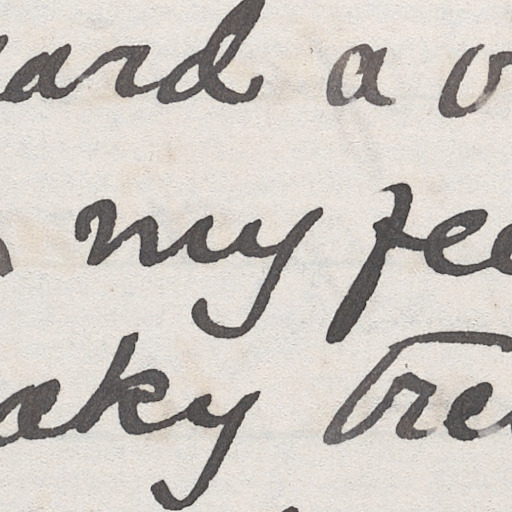 ard a
my fee
aky tre